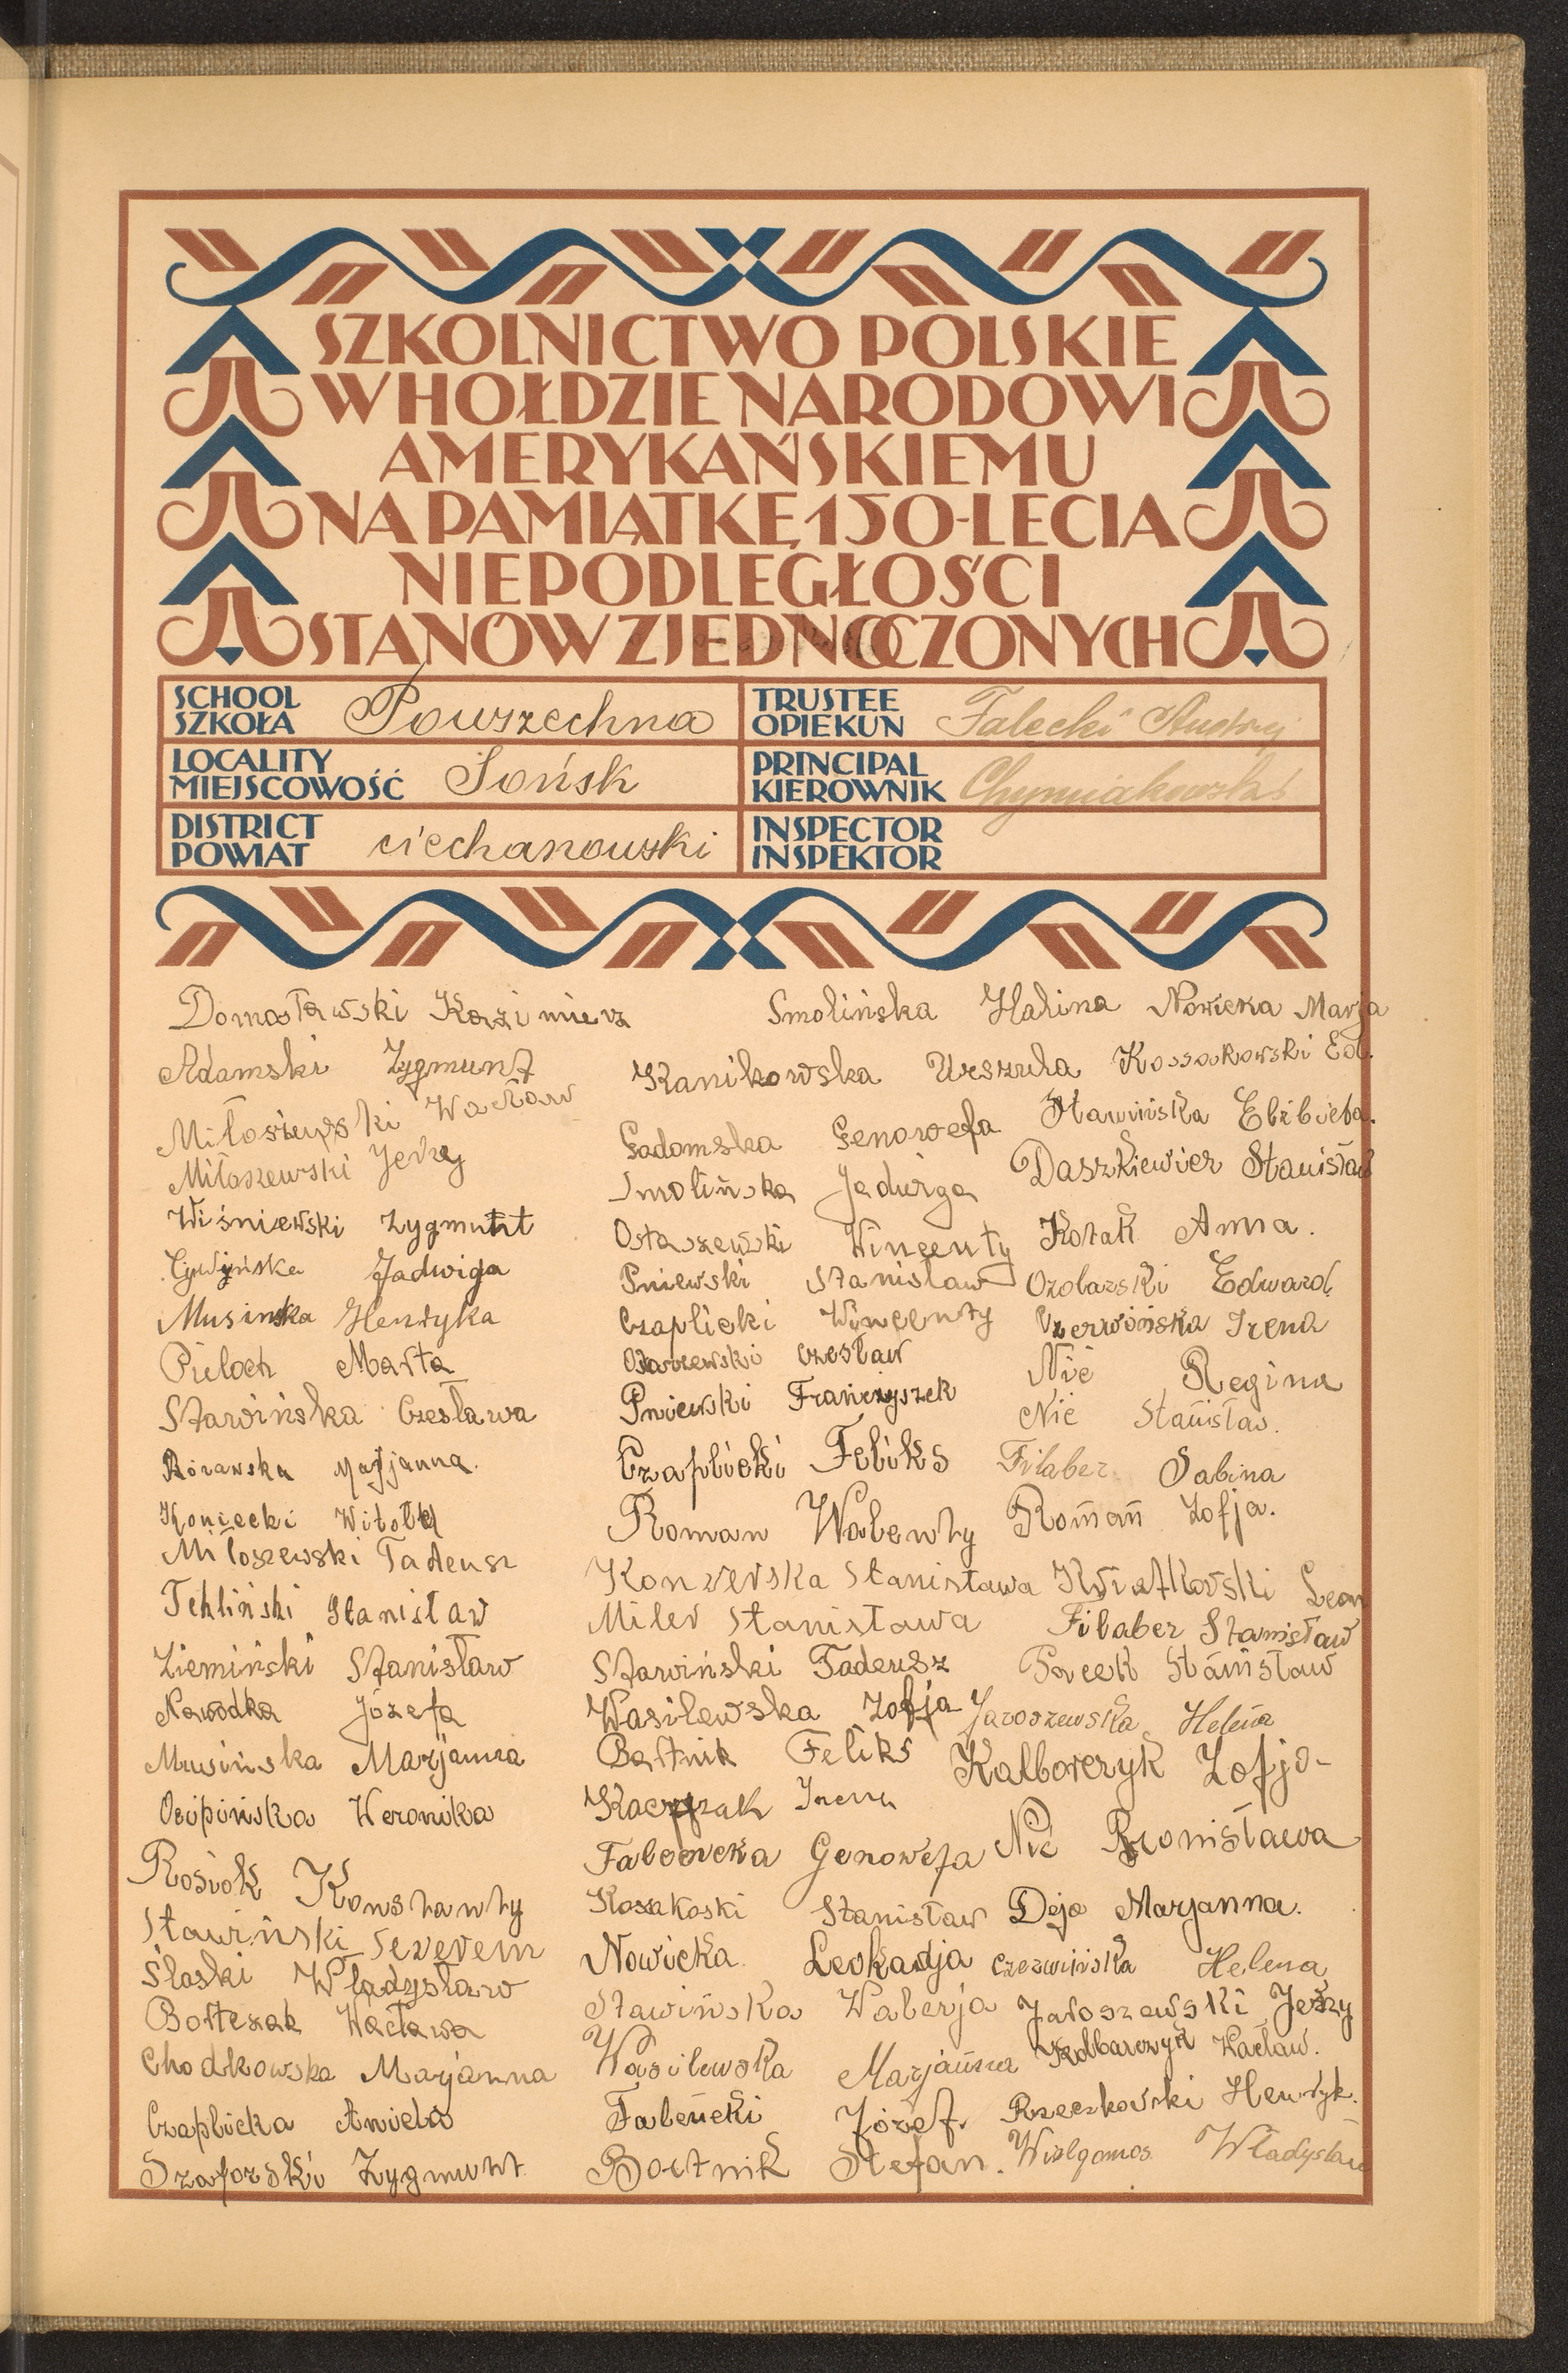 SZKOLNICTWO POLSKIE
W HOŁDZIE NARODOWI
AMERYKAŃSKIEMU
NA PAMIĄTKĘ 150-LECIA
NIEPODLEGŁOŚCI
STANÓW ZJEDNOCZONYCH
SCHOOL
SZKOŁA
Powszechna
TRUSTEE
OPIEKUN
Falęcki Andrzej
LOCALITY
MIEJSCOWOŚĆ
Sońsk
PRINCIPAL
KIEROWNIK
DISTRICT
POWIAT
ciechanowski
INSPECTOR
INSPEKTOR
Domosławski Kazimierz
Adamski Zygmunt
Miłoszewski Wacław
Miłoszewski Jerzy
Wiśniewski Zygmunt
Jadwiga
Musinska Henryka
Pieloch Marta
Stawińska Czesława
Rórawska Marjanna.
Koniecki Witold
Miłoszewski Tadeusz
Tekliński Stanisław
Ziemiński Stanisław
Nawodka Józefa
Musińska Marjanna
Osipińska Weronika
Rosiok Konstanty
Stawiński Sewerein
Ślaski Władysław
Bortczak Wacława
Chodkowska Marjanna
Czaplicka Aniela
Szaforski Zygmunt
Smolińska Halina
Kanikowska Urszula
Gadomska Genowefa
Smolińska Jadwiga
Ostaszewski Wincenty
Pniewski Stanisław
Czaplicki Wincenty
Ostaszewski Czesław
Pniewski Franciszek
Czaplicki Feliks
Roman Walenty
Konwerska Stanisława
Miler Stanisława
Stawiński Tadeusz
Wasilewska Zofja
Bartnik Feliks
Kacprzak Irena
Falencka Genowefa
Kosakoski Stanisław
Nowicka Leokadja
Stawińska Walerja
Wasilewska Marjanna
Falencki Józef.
Bartnik Stefan.
Nowicka Marja
Kossakowski Ed.
Stawińska Elżbieta.
Daszkiewicz Stanisław
Kozak Anna.
Ozdarski Edward
Czerwińska Irena
Nić Regina
Nić Stanisław.
Filaber Sabina
Roman Zofja.
Kwiatkowski Leon
Filaber Stanisław
Pareek Stanisław
Jaroszewska Helena
Kalbarczyk Zofja
Nić Bronisława
Deja Marjanna.
Czerwińska Helena
Jaroszewski Jerzy
Kolbarczyk Wacław.
Rzeczkowski Henryk.
Wielgomos Władysław